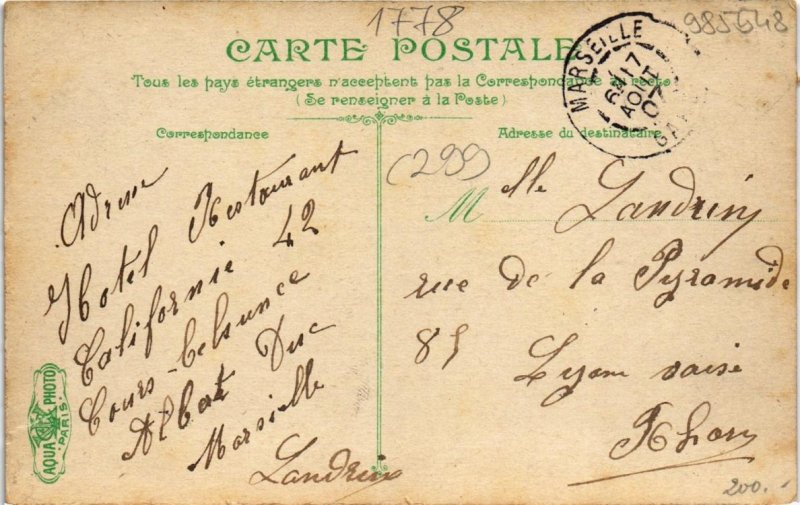 1778
985648
CARTE POSTALE
Tous les pays étrangers n'acceptent pas la Correspondance au recto
(Se renseigner à la Poste)
Correspondance
Adresse du destinataire
MARSEILLE
17
AOUT
07
(299)
Adresse
Hotel Restaurant
Californie 42
Cours-Belsunce
Albert Duc
Marseille
Landrin
Melle Landrin
rue de la Pyramide
85
Lyon vaise
Rhon
AQUA PHOTO
PARIS
200.-